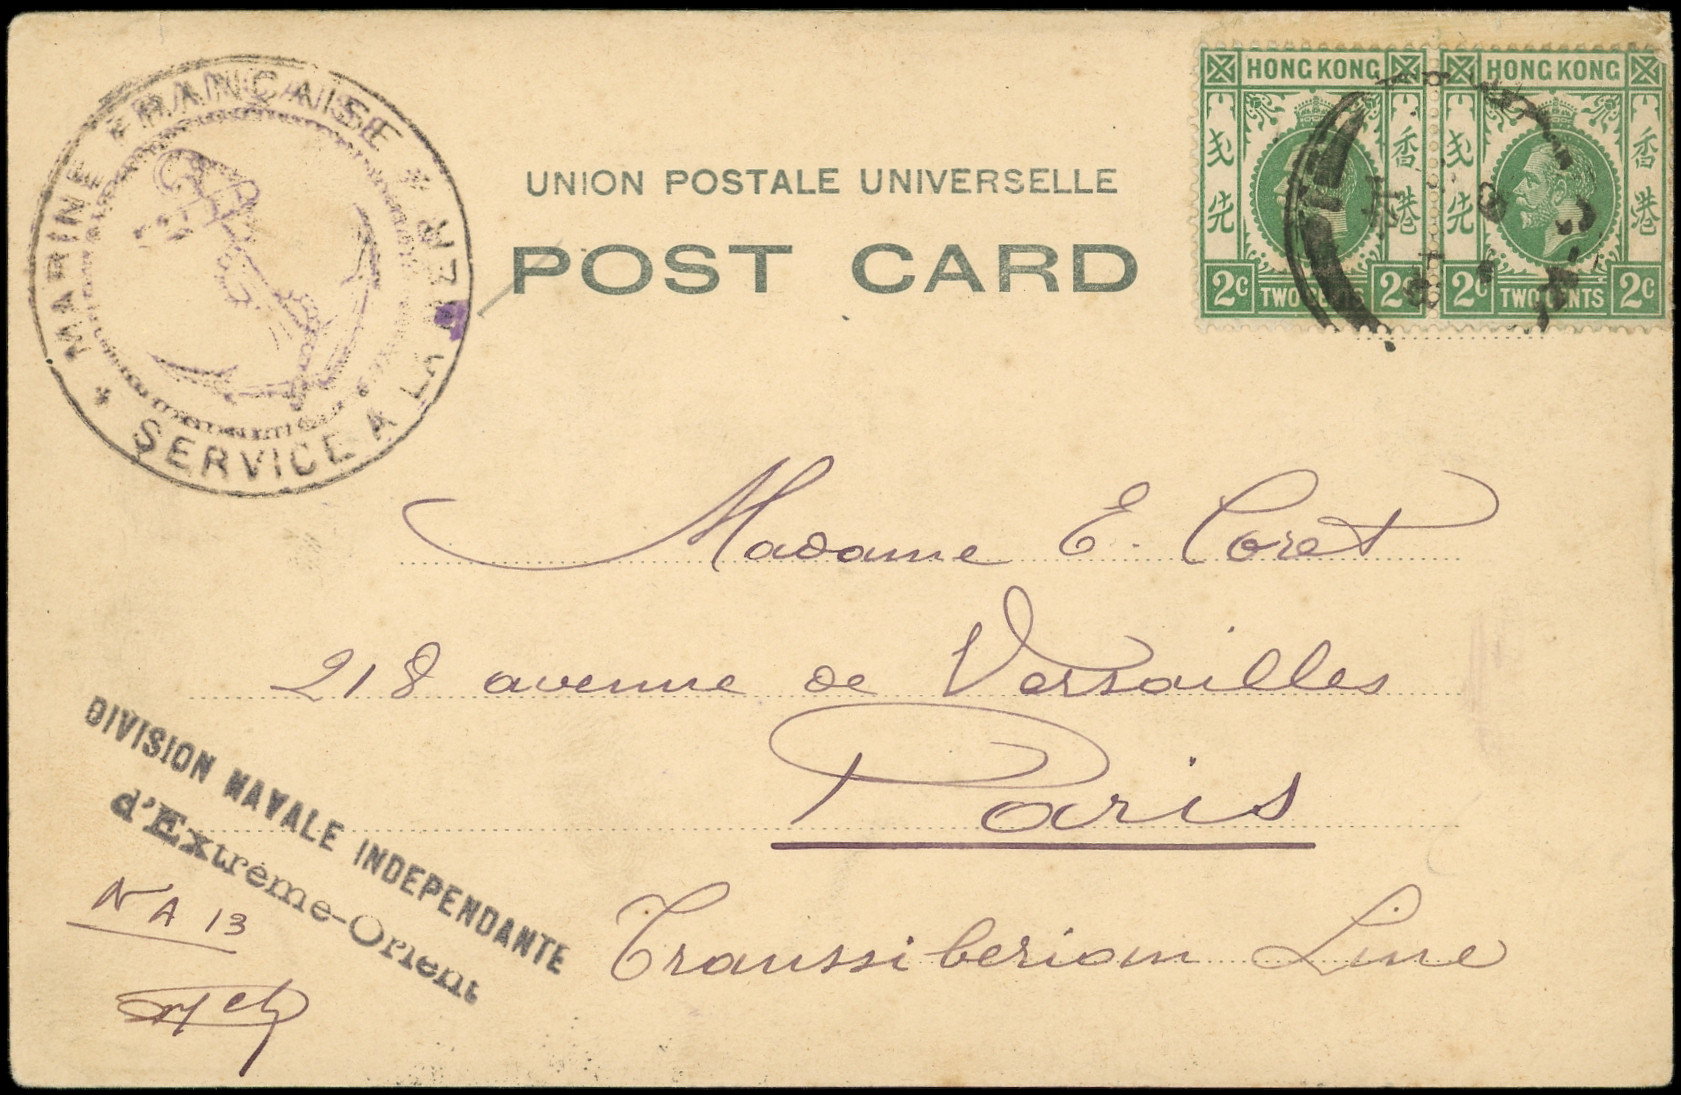 MARINE FRANÇAISE * SERVICE A LA MER *
UNION POSTALE UNIVERSELLE
POST CARD
HONG KONG
弍先
香港
2c TWO CENTS 2c
HONG KONG
弍先
香港
2c TWO CENTS 2c
Madame E. Coret
218 avenue de Versailles
Paris
Transsiberian Line
DIVISION NAVALE INDEPENDANTE
d'Extrême-Orient
N A 13